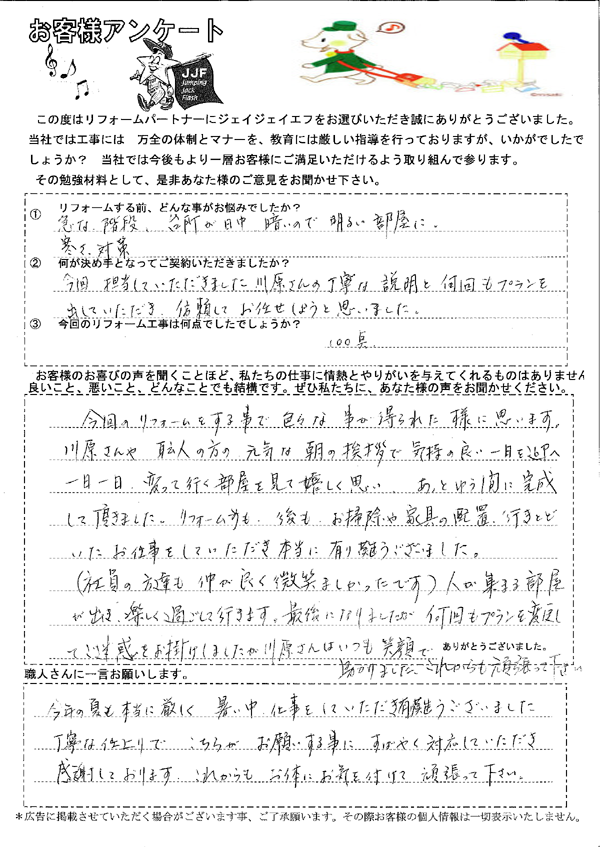 お客様アンケート
JJF
Jumping
Jack
Flash
この度はリフォームパートナーにジェイジェイエフをお選びいただき誠にありがとうございました。
当社では工事には 万全の体制とマナーを、教育には厳しい指導を行っておりますが、いかがでしたで
しょうか? 当社では今後もより一層お客様にご満足いただけるよう取り組んで参ります。
その勉強材料として、是非あなた様のご意見をお聞かせ下さい。
① リフォームする前、どんな事がお悩みでしたか?
急な階段、台所が日中 暗いので 明るい部屋に。
寒さ対策
② 何が決め手となってご契約いただきましたか?
今回 担当していただきました川原さんの丁寧な 説明と 何回もプランを
出していただき、信頼して お任せしようと思いました。
③ 今回のリフォーム工事は何点でしたでしょうか?
100点
お客様のお喜びの声を聞くことほど、私たちの仕事に情熱とやりがいを与えてくれるものはありません
良いこと、悪いこと、どんなことでも結構です。ぜひ私たちに、あなた様の声をお聞かせください。
今回のリフォームをする事で 色々な 事が得られた 様に思います。
川原さんや 職人の方の 元気な 朝の挨拶で 気持の良い一日を迎へ
一日一日、変って行く部屋を見て嬉しく思い、あっとゆう間に完成
して頂きました。リフォーム前も、後も、お掃除や家具の配置、行きとど
いたお仕事をしていただき本当に有り難うございました。
(社員の方達も 仲が良く微笑ましかったです)人が集まる部屋
が出き、楽しく過ごして行きます。最後になりましたが 何回もプランを変更し
てご迷惑をお掛けしましたが川原さんはいつも笑顔で ありがとうございました。
助かりました。これからも頑張って下さい
職人さんに一言お願いします。
今年の夏も本当に厳しく 暑い中、仕事をしていただき有難うございました
丁寧な仕上りで こちらが お願いする事に すばやく対応していただき
感謝しております。これからも お体に お気を付けて 頑張って下さい。
*広告に掲載させていただく場合がございます事、ご了承願います。その際お客様の個人情報は一切表示いたしません。